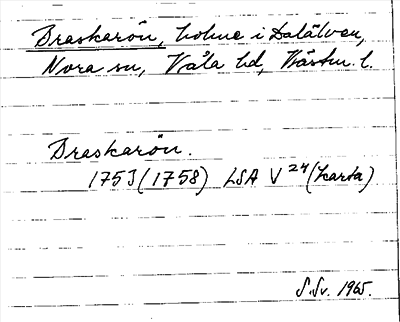 Braskarön, holme i Dalälven,
Nora sn, Våla hd, Västm. l.
Braskarön.
1753 (1758) LSA V 24 (karta)
S.Sv. 1965